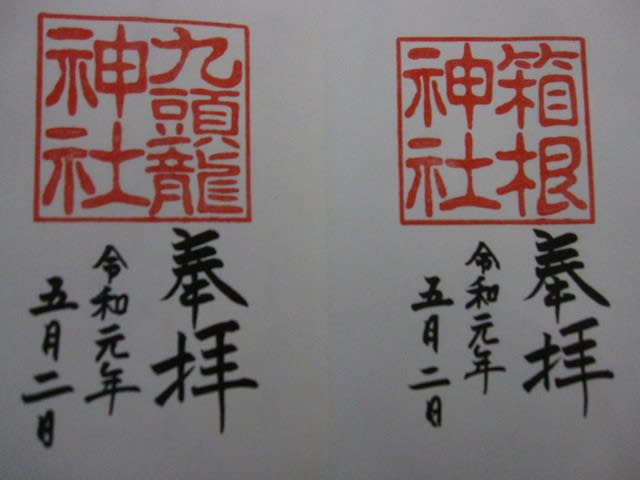 箱根
神社
奉拝
令和元年
五月二日
九頭龍
神社
奉拝
令和元年
五月二日